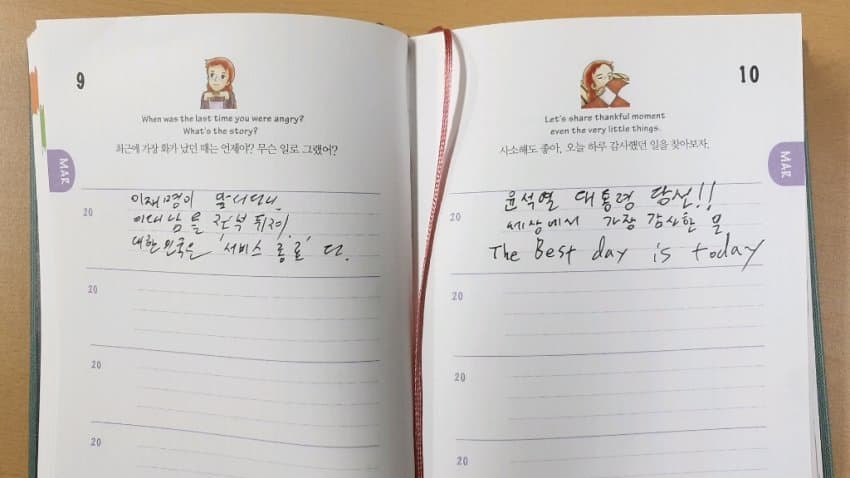 9
When was the last time you were angry?
What's the story?
최근에 가장 화가 났던 때는 언제야? 무슨 일로 그랬어?
MAR
20
이재명이
이대남들 전부 뒤져.
대한민국은 '서비스 종료' 다.
20
20
20
10
Let's share thankful moment
even the very little things.
사소해도 좋아, 오늘 하루 감사했던 일을 찾아보자.
MAR
20
윤석열 대통령 당선!!
세상에서 가장 감사한 일
The Best day is today
20
20
20